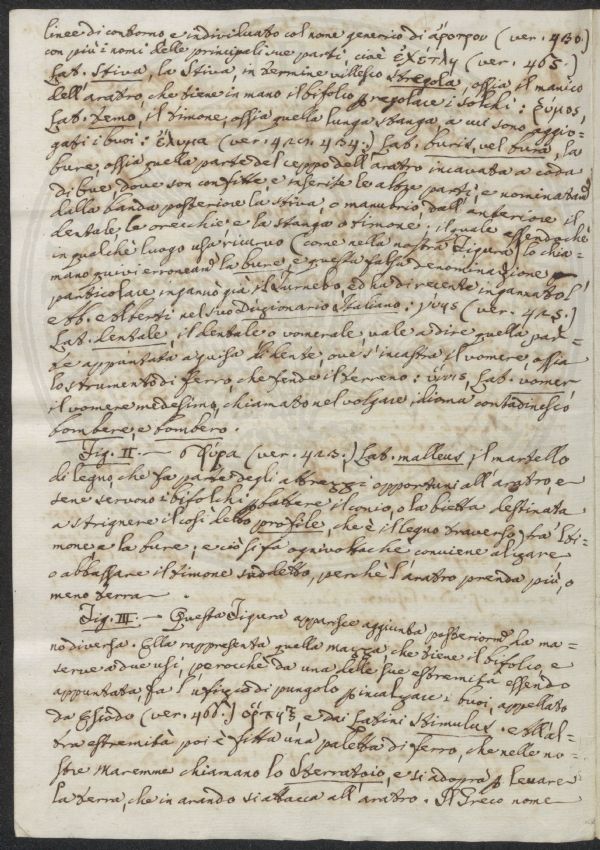 linee di contorno e individuato col nome generico di ἄροτρον (ver. 430.)
con più i nomi delle principali sue parti, cioè ἐχέτλη (ver. 465.)
Lat. Stiva, la Stiva, in termine villesco Stregola, ossia il manico
dell'aratro, che tiene in mano il bifolco p regolare i solchi:
Lat. Temo, il timone, ossia quella lunga stanga a cui sono aggio-
gati i buoi: ἔλυμα (ver. 434.) Lat. buris, vel bura, la
bure, ossia quella parte del ceppo dell'aratro incavata a coda
di bue dove son confitte e inserite le altre parti, e nominatam.
dalla banda posteriore la stiva, o manubrio, dall'anteriore il
dentale le orecchie e la stanga o timone; il quale essendochè
in qualche luogo usa ricurvo (come nella nostra Figura) lo chia-
mano quivi erroneam. la bure e questa falsa denominazione
particolare ingannò già il Turnebo, ed ha di recente ingannato l'
Ab. Alberti nel suo Dizionario Italiano: γύης (ver. 425.)
Lat. dentale, il dentale o vomerale vale a dire quella par-
te appuntata a guisa di dente, ove s'incastra il vomere, ossia
lo strumento di ferro, che fende il terreno: ὕννις, Lat. vomer
il vomere medesimo, chiamato nel volgare idioma contadinesco
bombere, e bombero.
Fig. II. — σφῦρα (ver. 423.) Lat. malleus, il martello
di legno, che fa parte degli attrezzi opportuni all'aratro, e
se ne servono i bifolchi p battere il conio, o la bietta destinata
a strignere il così detto profile, che è il legno traverso, trà l ti-
mone e la bure; e ciò si fa ogni volta che conviene alzare
o abbassare il timone suddetto, perchè l'aratro prenda più, o
meno terra.
Fig. III. — Questa Figura apparisce aggiunta posteriorm. da ma-
no diversa. Ella rappresenta quella mazza che tiene il bifolco, e
serve a due usi, perochè da una delle sue estremità essendo
appuntata, fa l'ufizio di pungolo p incalzare i buoi, appellato
da Esiodo (ver. 467.) ὅρπηξ e dai Latini Stimulus. All'al-
tra estremità poi è fitta una paletta di ferro, che nelle no-
stre Maremme chiamano lo Sterratoio, e si adopra p levare
la terra, che in arando si attacca all'aratro. Il Greco nome